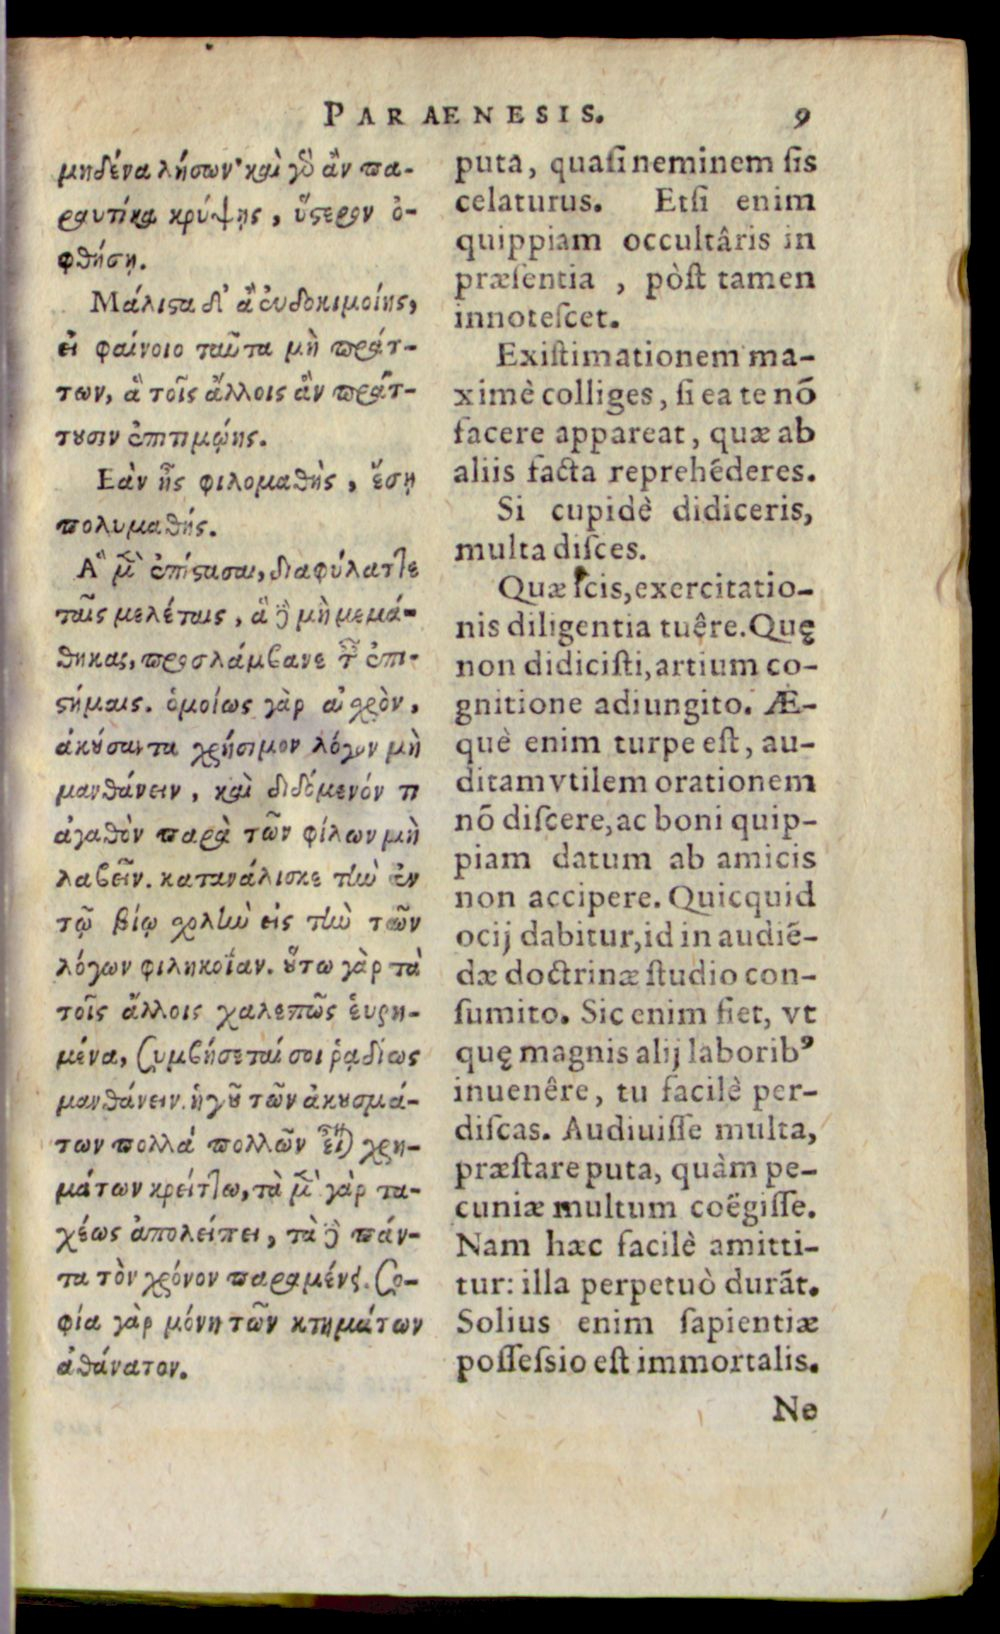 PARAENESIS. 9
μηδένα λήσων· καὶ γὸ ἂν πα-
ραυτίκα κρύψῃς, ὕςερον ὀ-
φθήσῃ.
Μάλιςα δ' ἂ εὐδοκιμοίης,
εἰ φαίνοιο ταῦτα μὴ πράτ-
των, ἃ τοῖς ἄλλοις ἂν πράτ-
τȣσιν ἐπιτιμῴης.
Εὰν ᾖς φιλομαθὴς, ἔσῃ
πολυμαθής.
Α῝ μ̃ ἐπίςασαι, διαφύλαττε
ταῖς μελέταις, ἃ ὃ μὴ μεμά-
θηκας, προσλάμβανε τ͂ ἐπι-
ςήμαις. ὁμοίως γὰρ αἰχρὸν,
ἀκȣσαντα χρήσιμον λόγον μὴ
μανθάνειν, καὶ διδόμενόν τι
ἀγαθὸν παρὰ τῶν φίλων μὴ
λαβεῖν. κατανάλισκε τὴν ἐν
τῷ βίῳ χολὴν εἰς τὴν τῶν
λόγων φιληκοΐαν. ȣ̔́τω γὰρ τὰ
τοῖς ἄλλοις χαλεπῶς εὑρη-
μένα, συμβήσεταί σοι ῥᾳδίως
μανθάνειν. ἡγȣ͂ τῶν ἀκȣσμά-
των πολλὰ πολλῶν εἶ) χρη-
μάτων κρείττω, τὰ μ̃ γὰρ τα-
χέως ἀπολείπει, τὰ ὃ πάν-
τα τὸν χρόνον παραμένει. Σο-
φία γὰρ μόνη τῶν κτημάτων
ἀθάνατον.
puta, quasi neminem sis
celaturus. Etsi enim
quippiam occultâris in
præsentia , pòst tamen
innotescet.
Existimationem ma-
ximè colliges, si ea te nõ
facere appareat, quæ ab
aliis facta reprehẽderes.
Si cupidè didiceris,
multa disces.
Quæ scis, exercitatio-
nis diligentia tuêre. Quę
non didicisti, artium co-
gnitione adiungito. Æ-
què enim turpe est, au-
ditam vtilem orationem
nõ discere, ac boni quip-
piam datum ab amicis
non accipere. Quicquid
ocij dabitur, id in audiẽ-
dæ doctrinæ studio con-
sumito. Sic enim fiet, vt
quę magnis alij laborib⁹
inuenêre, tu facilè per-
discas. Audiuisse multa,
præstare puta, quàm pe-
cuniæ multum coëgisse.
Nam hæc facilè amitti-
tur: illa perpetuò durãt.
Solius enim sapientiæ
possessio est immortalis.
Ne